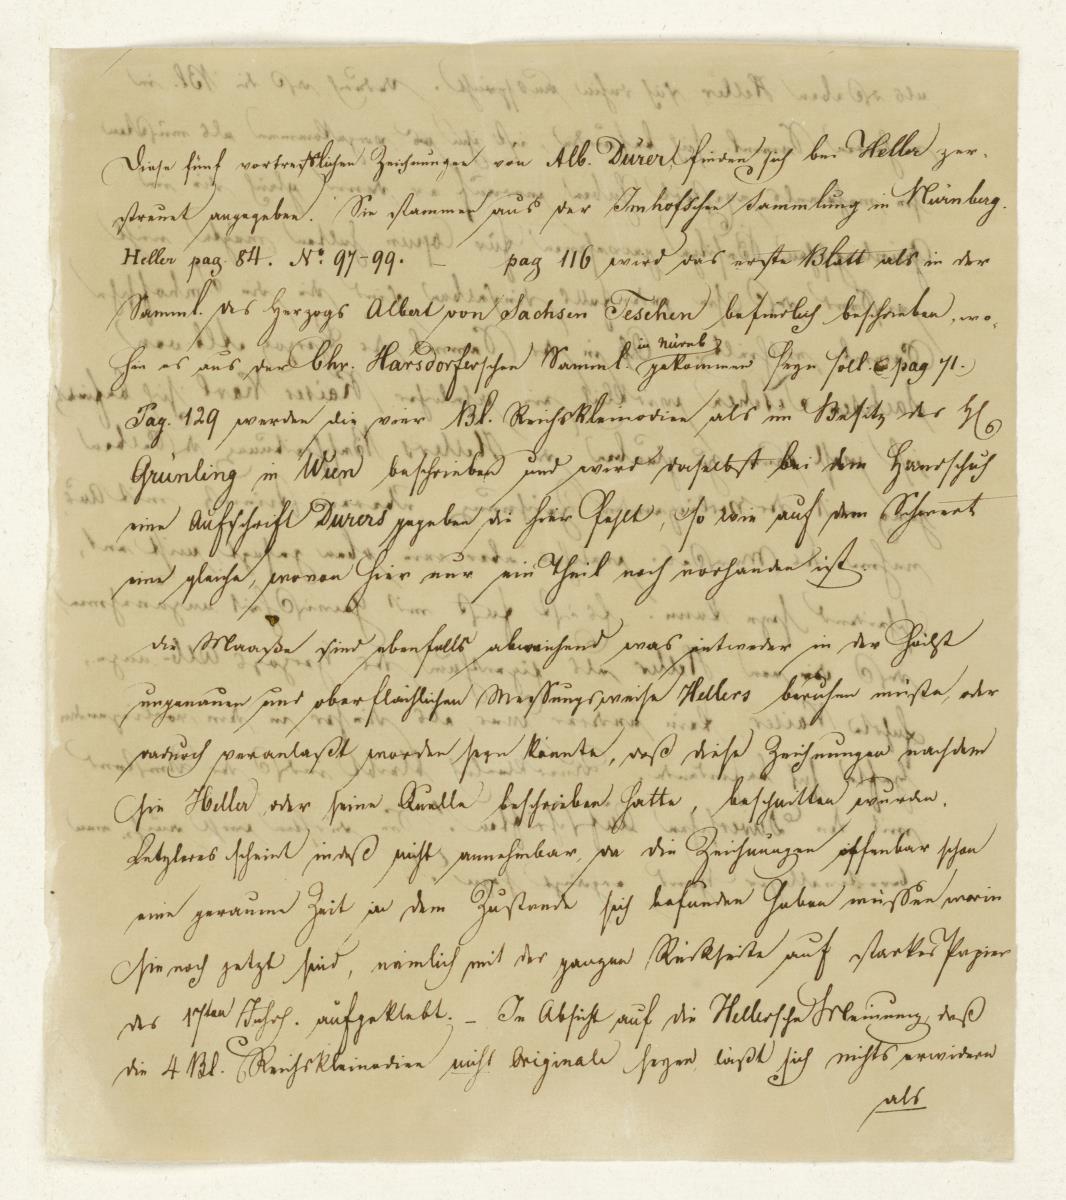 Diese fünf vortrefflichen Zeichnungen von Alb. Dürer, finden sich bei Heller zer-
streuet angegeben. Sie stammen aus der Imhofschen Sammlung in Nürnberg.
Heller pag. 84. No. 97-99. — pag 116 wird das erste Blatt als in der
Samml. des Herzogs Albert von Sachsen Teschen befindlich beschrieben, wo-
hin es aus der Chr. Harsdörferschen Samml. in Nürnb. gekommen seyn soll. (pag 71.)
Pag. 129 werden die vier Bl. Reichskleinodien als im Besitz des H
Grünling in Wien beschrieben und wird daselbst bei dem Handschuh
eine Aufschrift Dürers gegeben die hier fehlt, so wie auf dem Schwert
eine gleiche, wovon hier nur ein Theil noch vorhanden ist.
Die Maaße sind ebenfalls abweichend was entweder in der höchst
ungenauen und oberflächlichen Messungsweise Hellers beruhen müßte, oder
dadurch veranlaßt worden seyn könnte, daß diese Zeichnungen nachdem
sie Heller oder seine Quelle beschrieben hatte, beschnitten wurden.
Letzteres scheint indeß nicht annehmbar, da die Zeichnungen offenbar schon
eine geraume Zeit in dem Zustande sich befunden haben müssen worin
sie noch jetzt sind, nämlich mit der ganzen Rückseite auf starkes Papier
des 17ten Jahrh. aufgeklebt. — In Absicht auf die Hellersche Meinung, daß
die 4 Bl. Reichskleinodien nicht Originale seyen läßt sich nichts erwidern
als